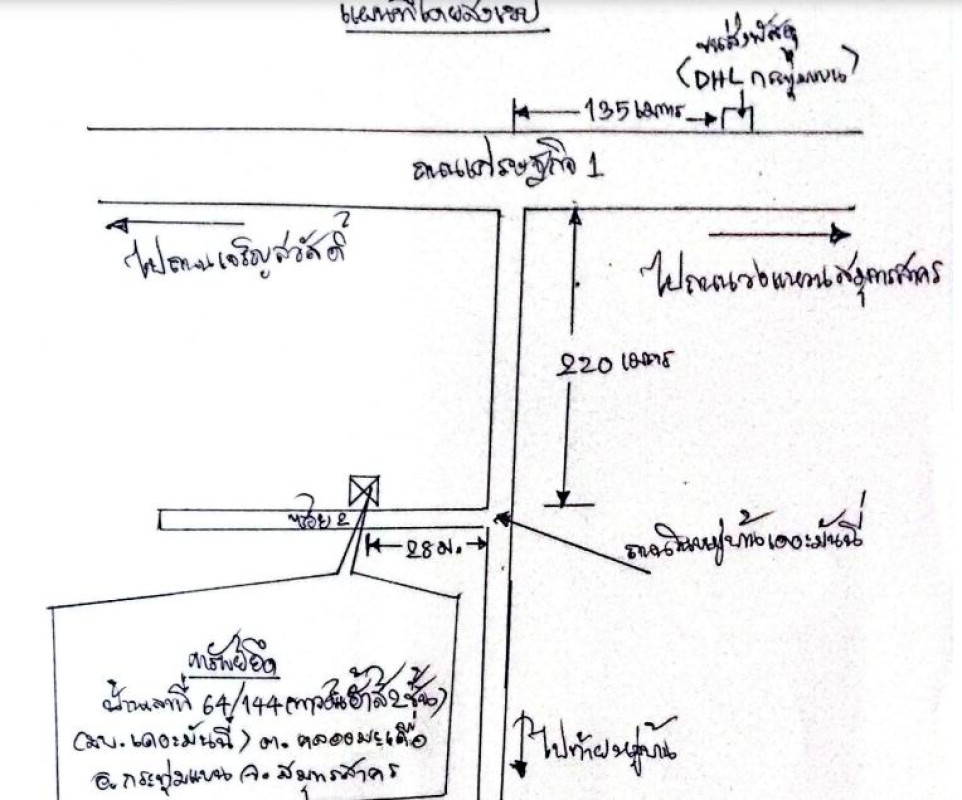 แผนที่โดยสังเขป
ขนส่งพัสดุ
(DHL กระทุ่มแบน)
135 เมตร
ถนนเศรษฐกิจ 1
ไปถนนเจริญสวัสดิ์
ไปถนนวงแหวนสมุทรสาคร
220 เมตร
ซอย 2
28 ม.
ถนนในหมู่บ้านเดอะมันนี่
ทรัพย์ยึด
บ้านเลขที่ 64/144 (ทาวน์เฮ้าส์ 2 ชั้น)
(มบ. เดอะมันนี่) ต. คลองมะเดื่อ
อ. กระทุ่มแบน จ. สมุทรสาคร
ไปท้ายหมู่บ้าน